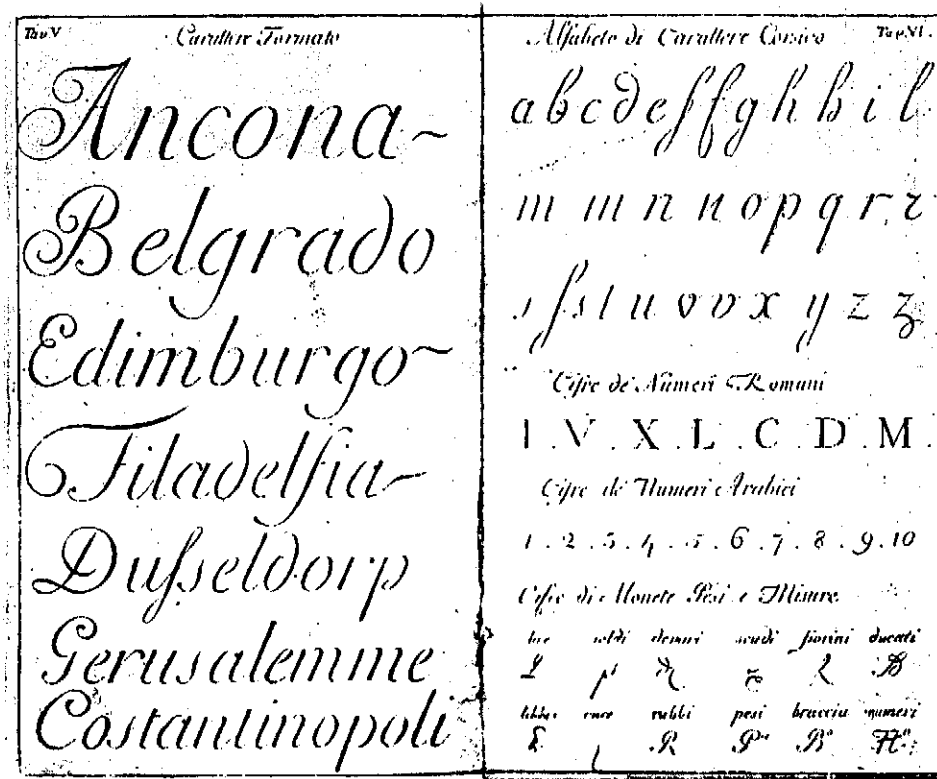 Tav V
Carattere Formato
Ancona
Belgrado
Edimburgo
Filadelfia
Dusseldorp
Gerusalemme
Costantinopoli
Alfabeto di Carattere Corsivo
Tav VI.
a b c d e f f g h h i l
m m n n o p q r r
s ſ s t u v v x y z z
Cifre de Numeri Romani
I . V . X . L . C . D . M .
Cifre de Numeri Arabici
1 . 2 . 3 . 4 . 5 . 6 . 7 . 8 . 9 . 10
Cifre di Monete Pesi e Misure
lire soldi denari scudi fiorini ducati
libbre once rubbi pesi braccia numeri
R P B